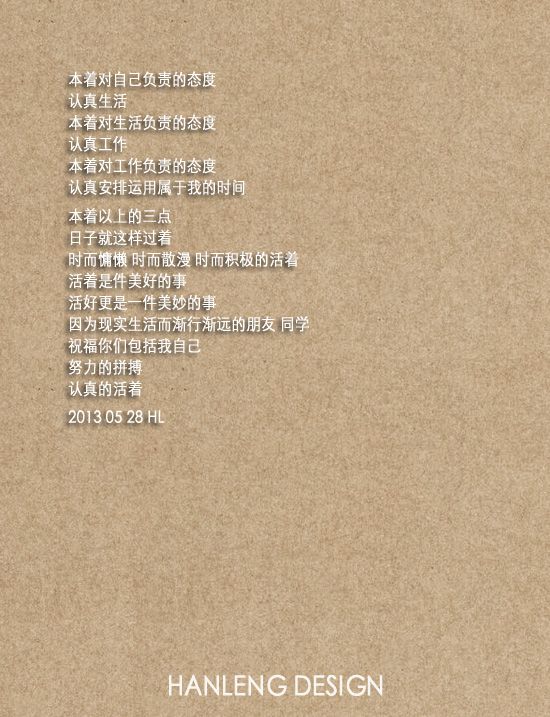 本着对自己负责的态度
认真生活
本着对生活负责的态度
认真工作
本着对工作负责的态度
认真安排运用属于我的时间
本着以上的三点
日子就这样过着
时而慵懒 时而散漫 时而积极的活着
活着是件美好的事
活好更是一件美妙的事
因为现实生活而渐行渐远的朋友 同学
祝福你们包括我自己
努力的拼搏
认真的活着
2013 05 28 HL
HANLENG DESIGN